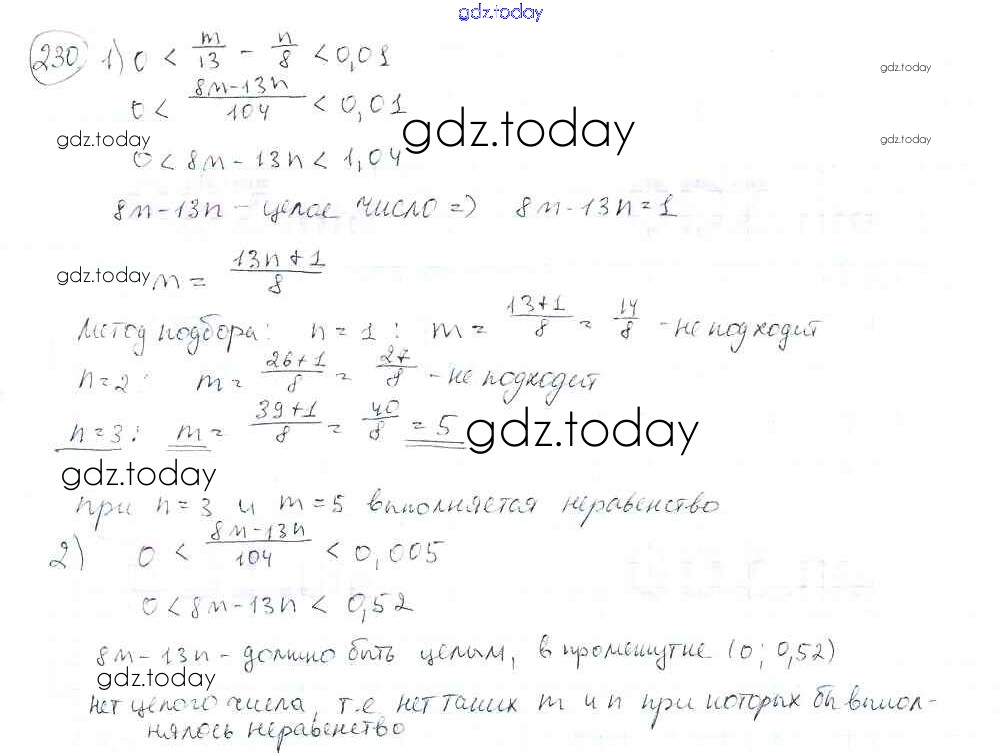 gdz.today
230 1) 0 < m/13 - n/8 < 0,01
gdz.today
0 < 8m-13n/104 < 0,01
gdz.today
gdz.today
gdz.today
0 < 8m - 13n < 1,04
8m-13n - целое число => 8m-13n=1
gdz.today
m = 13n+1/8
Метод подбора: n = 1 : m = 13+1/8 = 14/8 - не подходит
n=2: m = 26+1/8 = 27/8 - не подходит
n=3: m = 39+1/8 = 40/8 = 5
gdz.today
gdz.today
при n=3 и m=5 выполняется неравенство
2) 0 < 8m-13n/104 < 0,005
0 < 8m-13n < 0,52
8m-13n - должно быть целым, в промежутке (0; 0,52)
gdz.today
нет целого числа, т.е нет таких m и n при которых бы выпол-
нялось неравенство